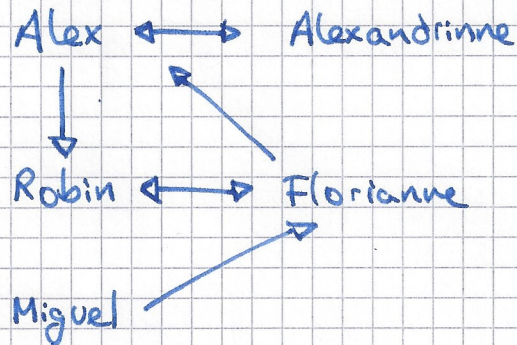 Alex Alexandrinne
Robin Florianne
Miguel